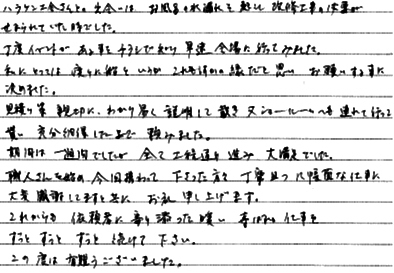 ハラケン工舎さんとの出会いは お風呂の水漏れを起し 改修工事の必要が
せまられていた時でした。
丁度イベントが ある事をチラシで知り 早速 会場に行ってみました。
私にとっては 渡りに船というか これも何かの縁だと思い お願いする事に
決めました。
見積り等 親切に、わかり易く 説明して戴き 又ショールームへも 連れて行って
貰い 充分納得した上で 頼みました。
期間は 一週間でしたが 全て 工程通り 進み 大満足でした。
職人さんを始め 今回携わって 下さった方々 丁寧且つ 綺麗な仕事に
大変 感謝してますと共に お礼 申し上げます。
これからも 依頼者に 寄り添った 暖い 仕事を
ずっと ずっと ずっと 続けて 下さい。
この度は 有難うございました。